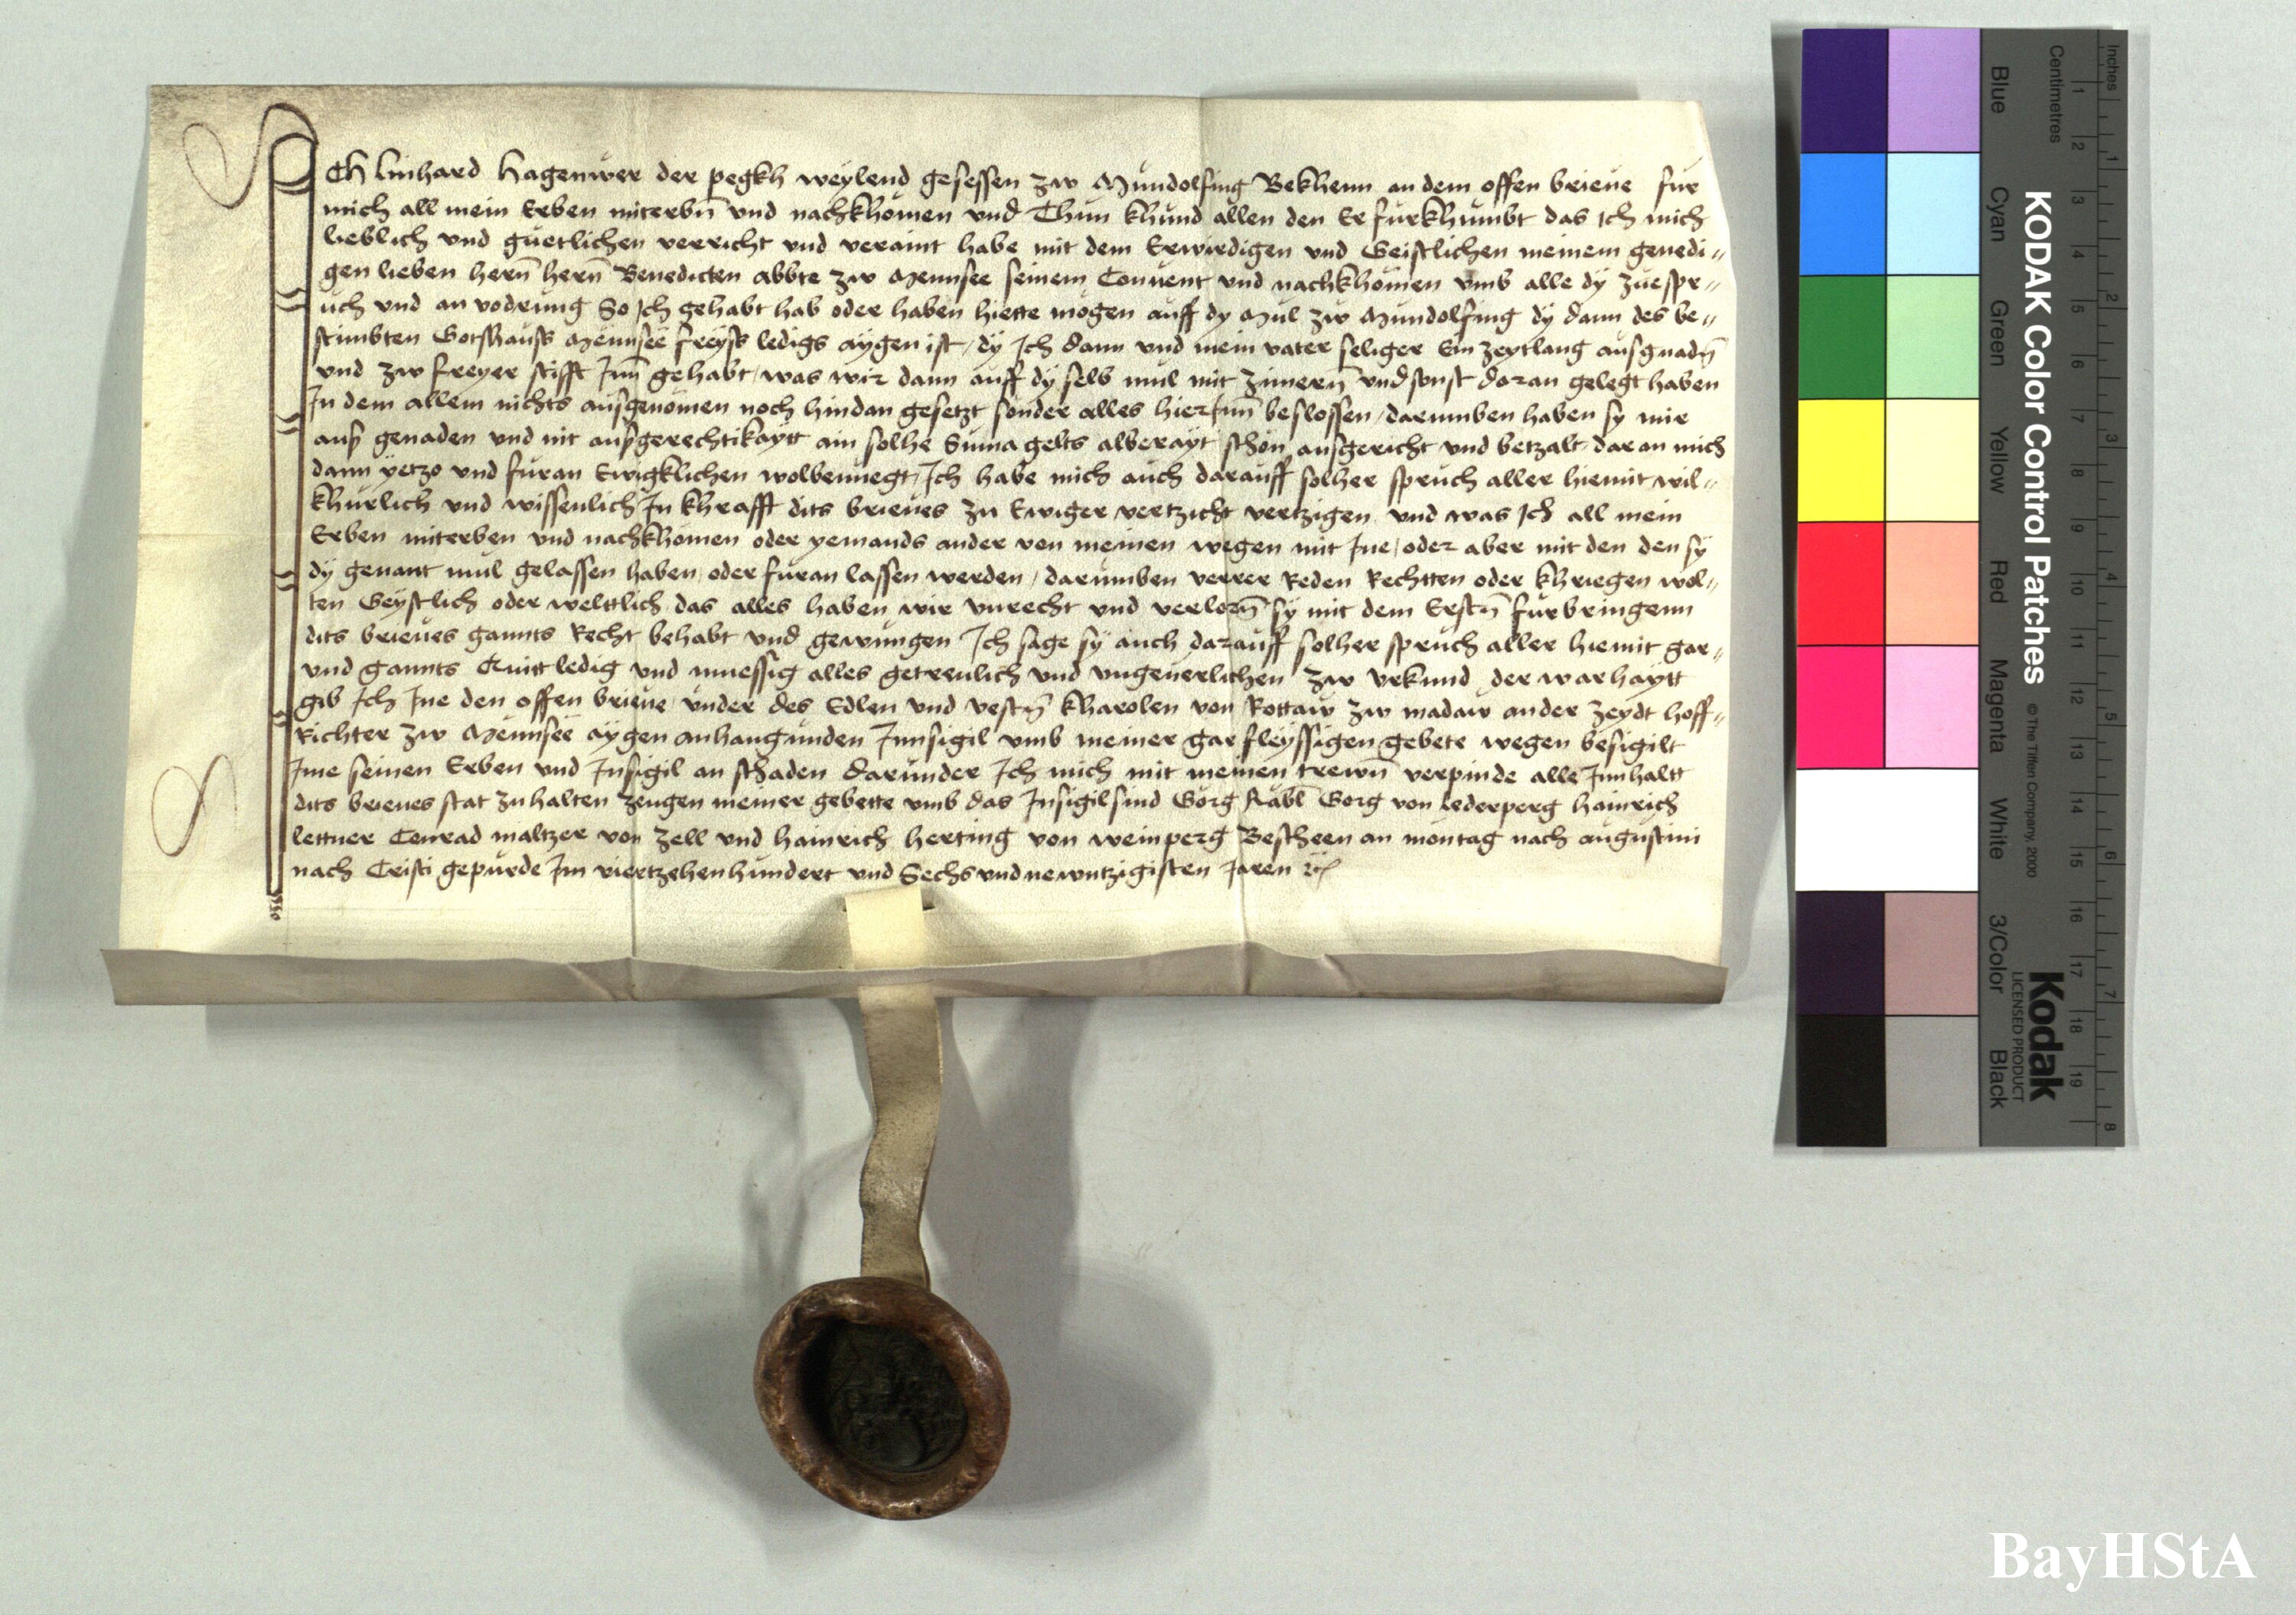 Ich linhard hagenwer der pegkh weylend gesessen zw Mundolfing Bekhenn an dem offen brieue fur
mich all mein Erben miterbn̄ vnd nachkhomen vnd Thun khund allen den Er furkhumbt das ich mich
lieblich vnd guetlichen verricht vnd veraint habe mit dem Erwirdigen vnd Geistlichen meinem genedi〃
gen lieben hern̄ hern̄ Benedicten abbte zw Mennsee seinem Conuent vnd nachkhomen vmb alle dy zuespr〃
uch vnd an vodrung So Ich gehabt hab oder haben hiette mogen auff dy Mul zw Mundolfing dy dann des be〃
stimbten Gotshauss Mennsee freyss ledigs aygen ist / dy Ich dann vnd mein vater seliger Ein zeytlang ausgnadn̄
vnd zw freyer stifft Inn̄ gehabt / was wir dann auff dy selb mul mit zimern̄ vnd sunst daran gelegt haben
In dem allem nichts ausgenomen noch hindan gesetzt sonder alles hierInn̄ beslossen / darumben haben sy mir
aus genaden vnd nit ausgerechtikaytt ain solhe Suma gelts alberayt schon ausgericht vnd betzalt / dar an mich
dann yetzo vnd furan Ewigklichen wolbenuegt / Ich habe mich auch darauff solher spruch aller hiemit wil〃
khurlich vnd wissenlich In khrafft dits brieues zu Ewiger vertzicht vertzigen vnd was Ich all mein
Erben miterben vnd nachkhomen oder yemands ander von meinen wegen mit Ine / oder aber mit den den sy
dy genant mul gelassen haben oder furan lassen werden / darumben verrer Reden Rechtten oder khriegen wol〃
ten Geystlich oder welttlich das alles haben wir vnrecht vnd verlorn̄ sy mit dem Erstn̄ furbringenn
dits brieues gannts Recht behabt vnd gewungen Ich sage sy auch darauff solher spruch aller hiemit gar〃
vnd gannts Quitt ledig vnd muessig alles getreulich vnd vngeuerlichen zw vrkund der warhaytt
gib Ich Ine den offen brieue vnder des Edlen vnd vestn̄ kharolen von Rottaw zw madaw ander zeydt hoff〃
Richter zw Mennsee aygen anhangunden Innsigil vmb meiner gar fleyssigen gebete wegen besigilt
Ime seinen Erben vnd Insigil an schaden darunder Ich mich mit meinen trewn̄ verpinde alle Innhaltt
dits brieues stat zu halten zeugen meiner gebette vmb das Insigil sind Gorg Kabl Gorg von lederperg hainrich
lettner Conrad maltzer von zell vnd hainrich herting von weinperg Bescheen an montag nach augustini
nach Cristi gepurde Im viertzehenhundert vnd Sechs vnd newntzigisten Jaren
KODAK Color Control Patches
© The Tiffen Company, 2000
Kodak
LICENSED PRODUCT
Inches
1 2 3 4 5 6 7 8
Centimetres
1 2 3 4 5 6 7 8 9 10 11 12 13 14 15 16 17 18 19
Blue
Cyan
Green
Yellow
Red
Magenta
White
3/Color
Black
BayHStA